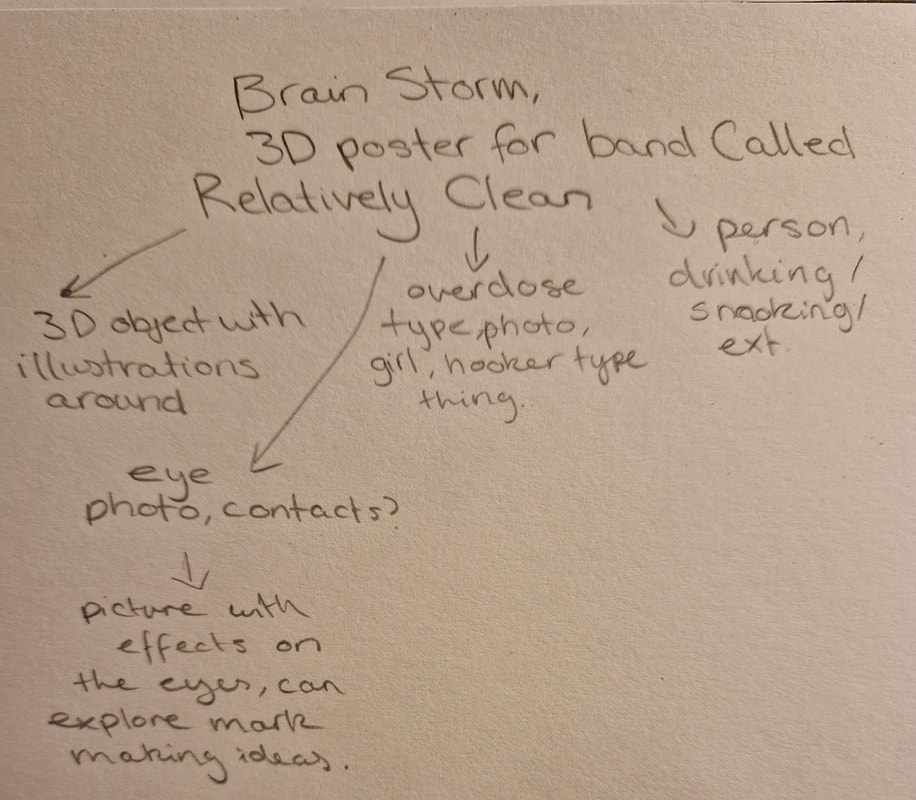 Brain Storm,
3D poster for band Called
Relatively Clean
3D object with
illustrations
around
overdose
type photo,
girl, hooker type
thing.
person,
drinking /
smoking /
ext.
eye
photo, contacts?
picture with
effects on
the eyes, can
explore mark
making ideas.